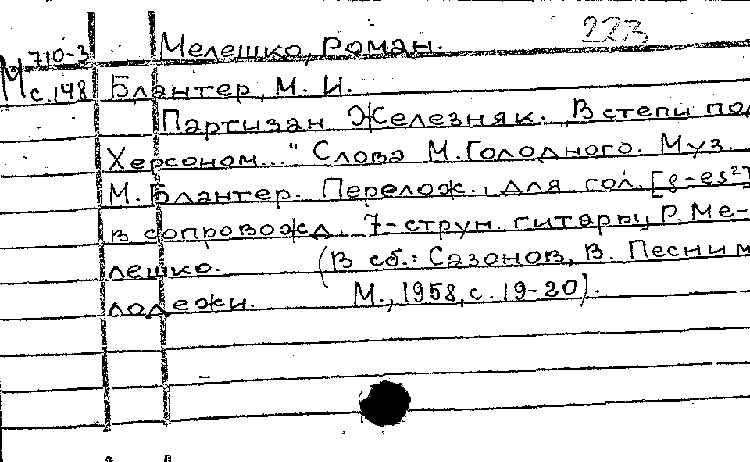 223
Мелешко, Роман.
М 710-3
с. 148
Блантер, М. И.
Партизан Железняк. „В степи под
Херсоном..." Слова М. Голодного. Муз.
М. Блантер. Перелож. для гол. [g-es²]
в сопровожд. 7-струн. гитары Р. Ме-
лешко. (В сб.: Сазонов, В. Песни м
лодежи. М., 1958, с. 19-20).